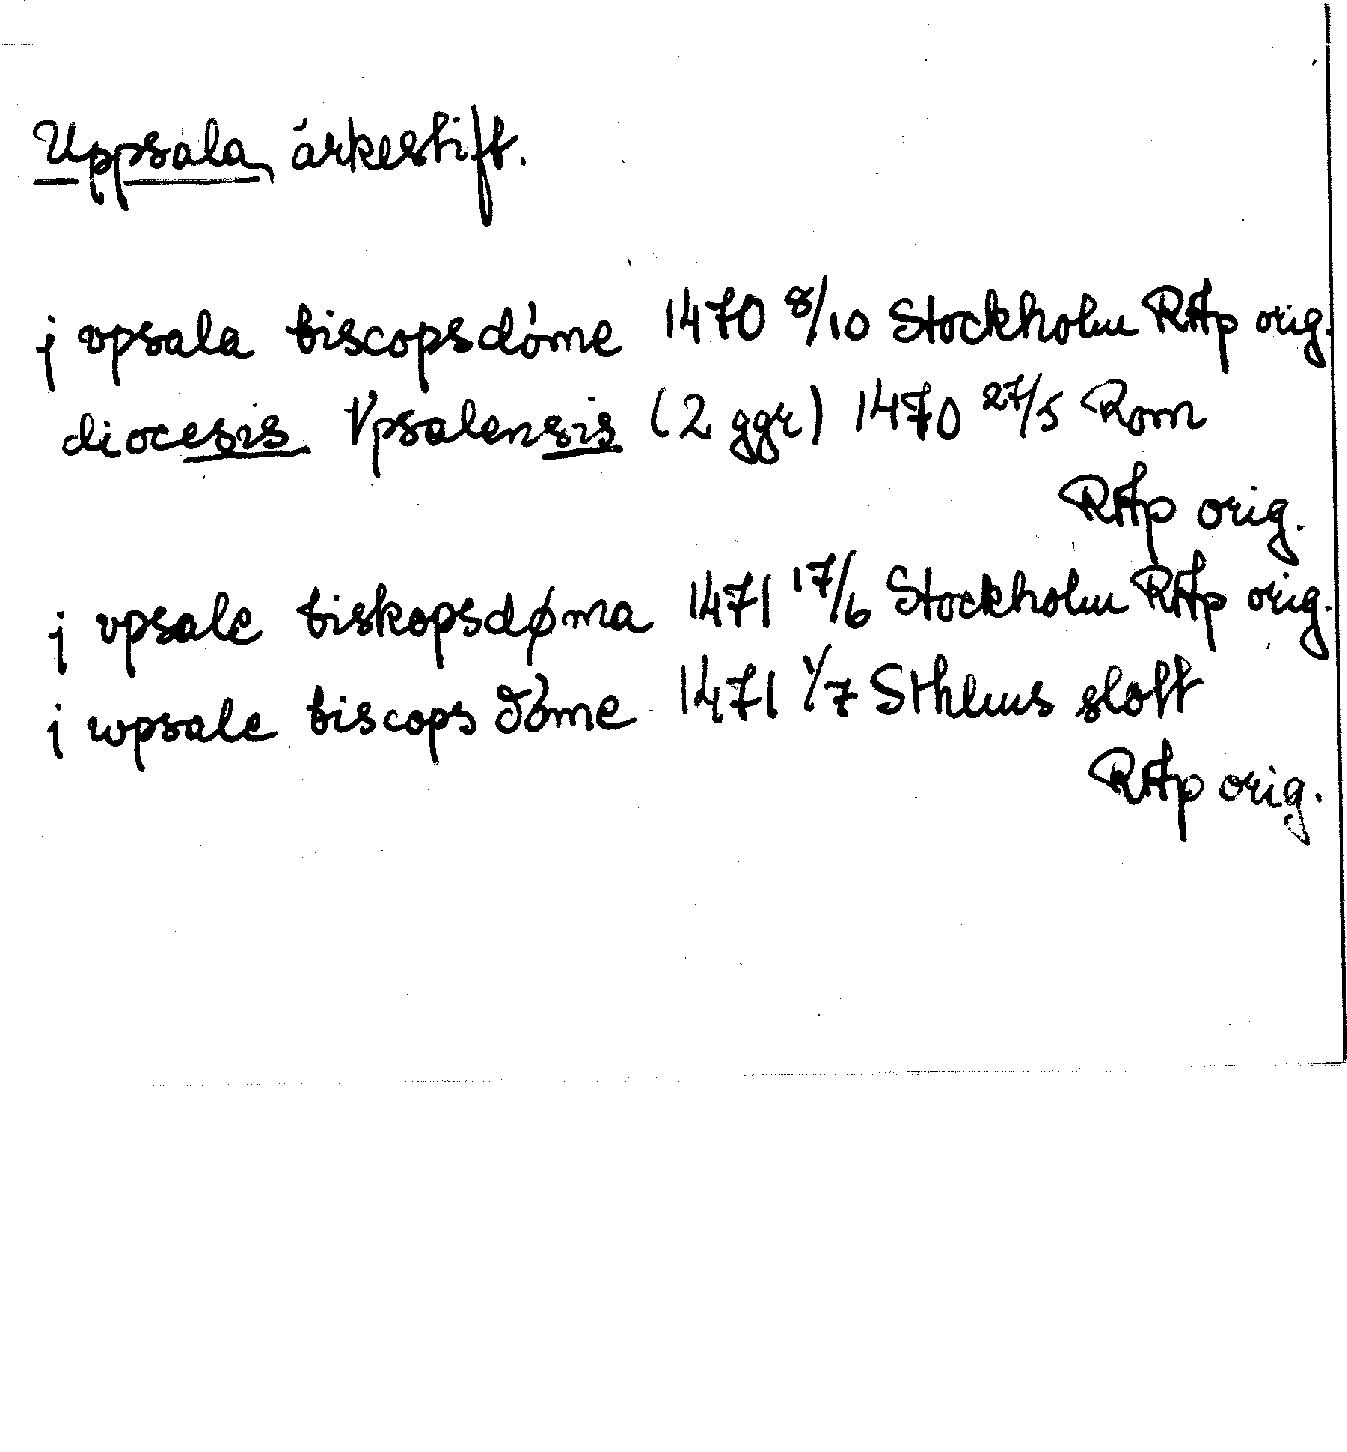 Uppsala ärkestift.
j vpsala biscopsdóme 1470 8/10 Stockholm RAp orig.
diocesis Vpsalensis (2 ggr) 1470 27/5 Rom
RAp orig.
j vpsale biskopsdøma 1471 17/6 Stockholm RAp orig.
j wpsale biscops dóme 1471 1/7 Sthlms slott
RAp orig.